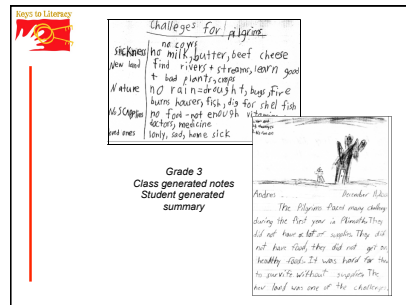 Keys to Literacy
Challeges for pilgrims
no cows
sickness no milk, butter, beef cheese
New land find rivers + streams, learn good
+ bad plants, crops
Nature no rain = drought, bugs, fire
burns houses, fish, dig for shel fish
No Supplies no food - not enough vitamins
doctors, medicine
lonly, sad, home sick
Grade 3
Class generated notes
Student generated
summary
Andrew December
The Pilgrims faced many challenges
during the first year in Plimoth. They
did not have a lot of supplies. They did
not have food, they did not get
healthy foods. It was hard for
to survife without supplies. The
new land was one of the challenges.